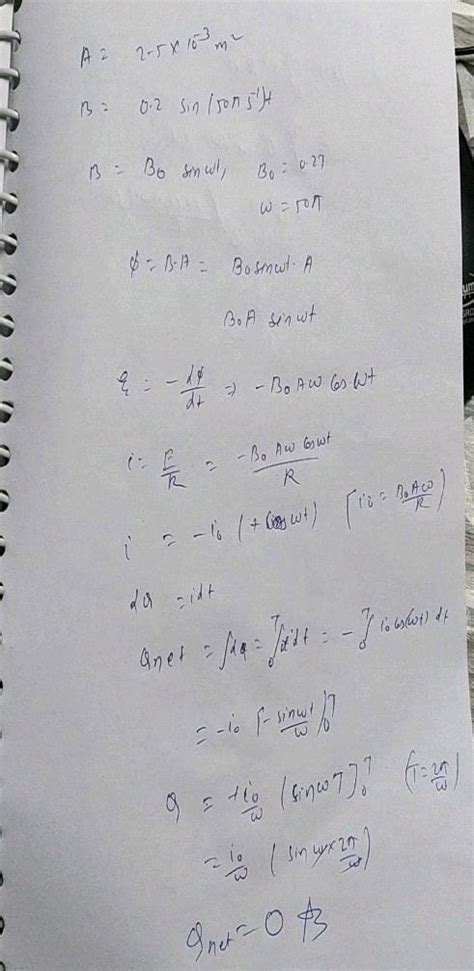 A = 2.5 × 10⁻³ m²
B = 0.2 sin (50π s⁻¹)t
B = B₀ sin ωt, B₀ = 0.2T
ω = 50π
φ = B·A = B₀ sin ωt · A
B₀A sin ωt
ε = -dφ/dt ⇒ -B₀ A ω cos ωt
i = E/R = -B₀ A ω cos ωt / R
i = -i₀ (+cos ωt) [i₀ = B₀Aω/R]
dQ = idt
Qnet = ∫dq = ₀∫ᵀ idt = -₀∫ᵀ i₀ cos(ωt) dt
= -i₀ [-sin ωt/ω]₀ᵀ
Q = +i₀/ω (sin ωT]₀ᵀ (T = 2π/ω)
= i₀/ω (sin ω × 2π/ω)
Qnet = 0